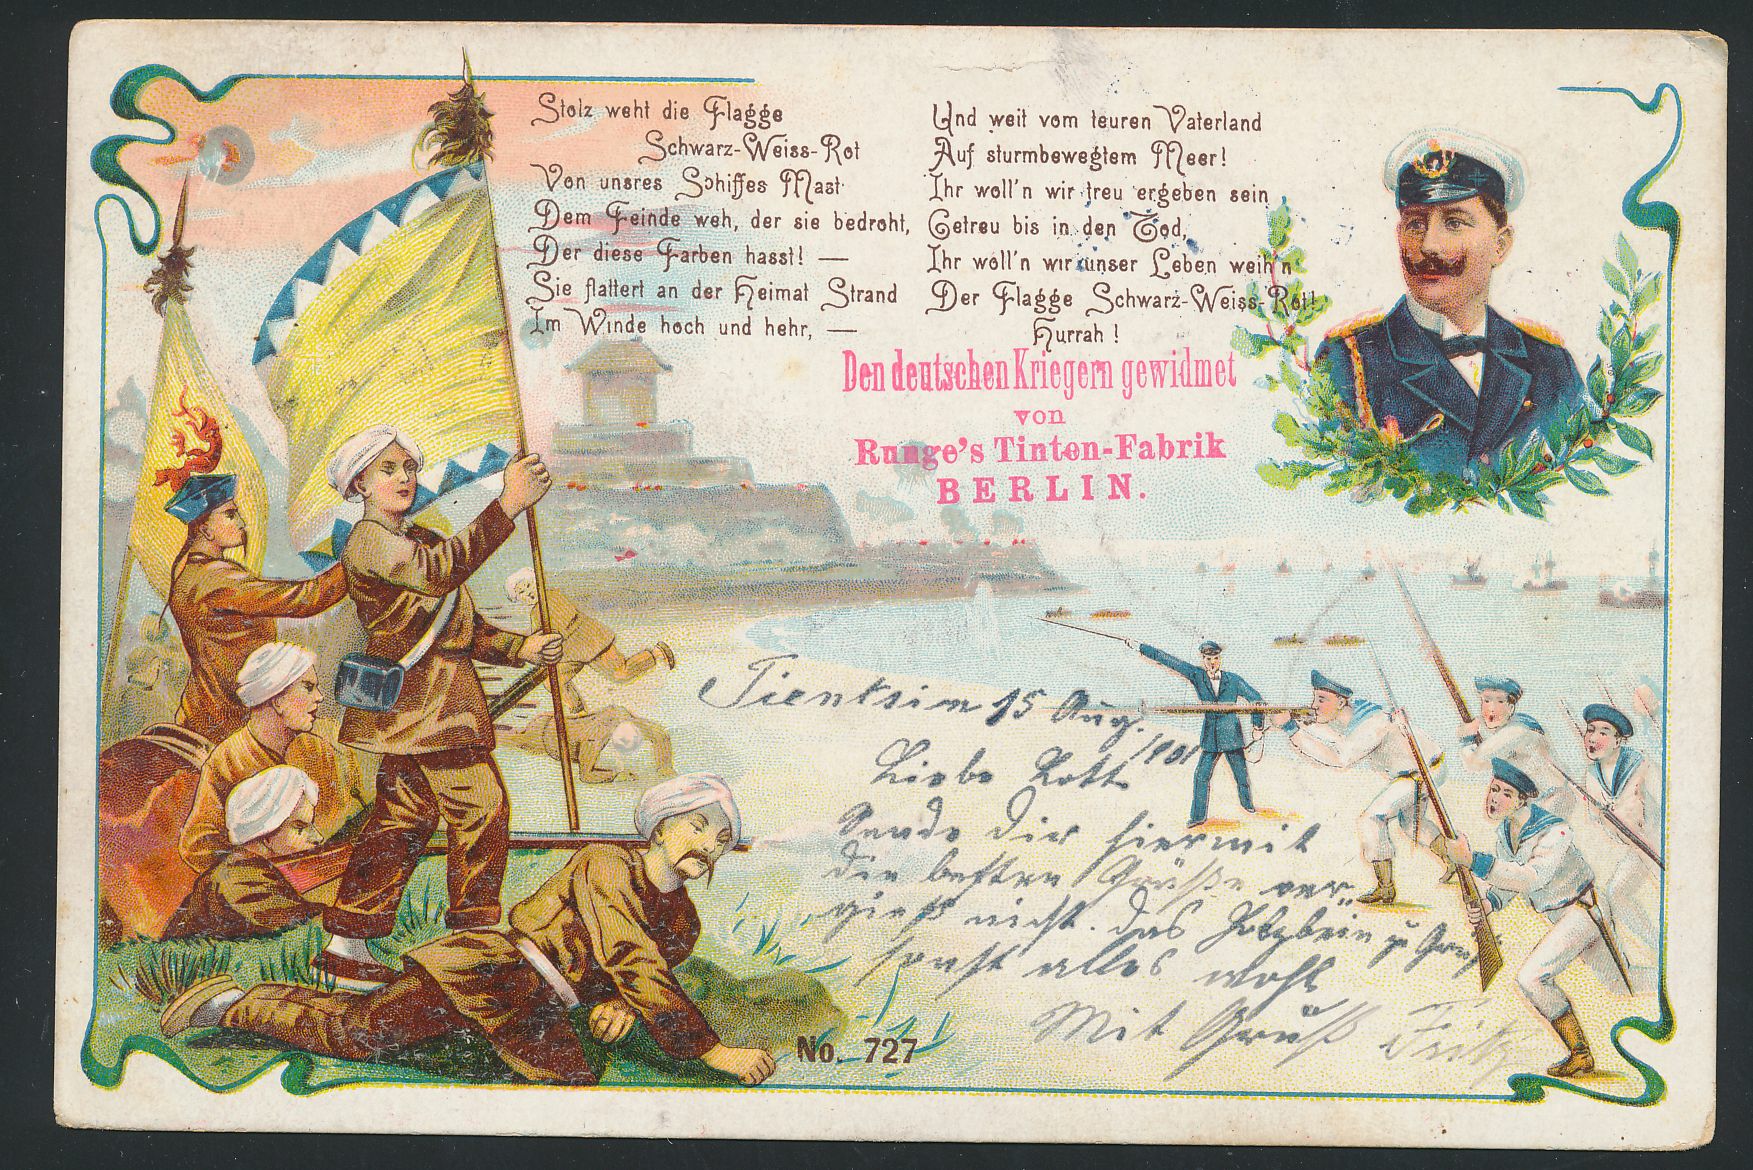 Stolz weht die Flagge
Schwarz-Weiss-Rot
Von unsres Schiffes Mast
Dem Feinde weh, der sie bedroht,
Der diese Farben hasst! —
Sie flattert an der Heimat Strand
Im Winde hoch und hehr, —
Und weit vom teuren Vaterland
Auf sturmbewegtem Meer!
Ihr woll'n wir treu ergeben sein
Getreu bis in den Tod,
Ihr woll'n wir unser Leben weih'n
Der Flagge Schwarz-Weiss-Rot!
Hurrah!
Den deutschen Kriegern gewidmet
von
Runge's Tinten-Fabrik
BERLIN.
Tientsin 15 Aug.
1901
Liebe Lotte
Sende dir hiermit
die besten Grüße ver-
giess nicht. das
sonst alles wohl
Mit Gruß Fritz
No. 727